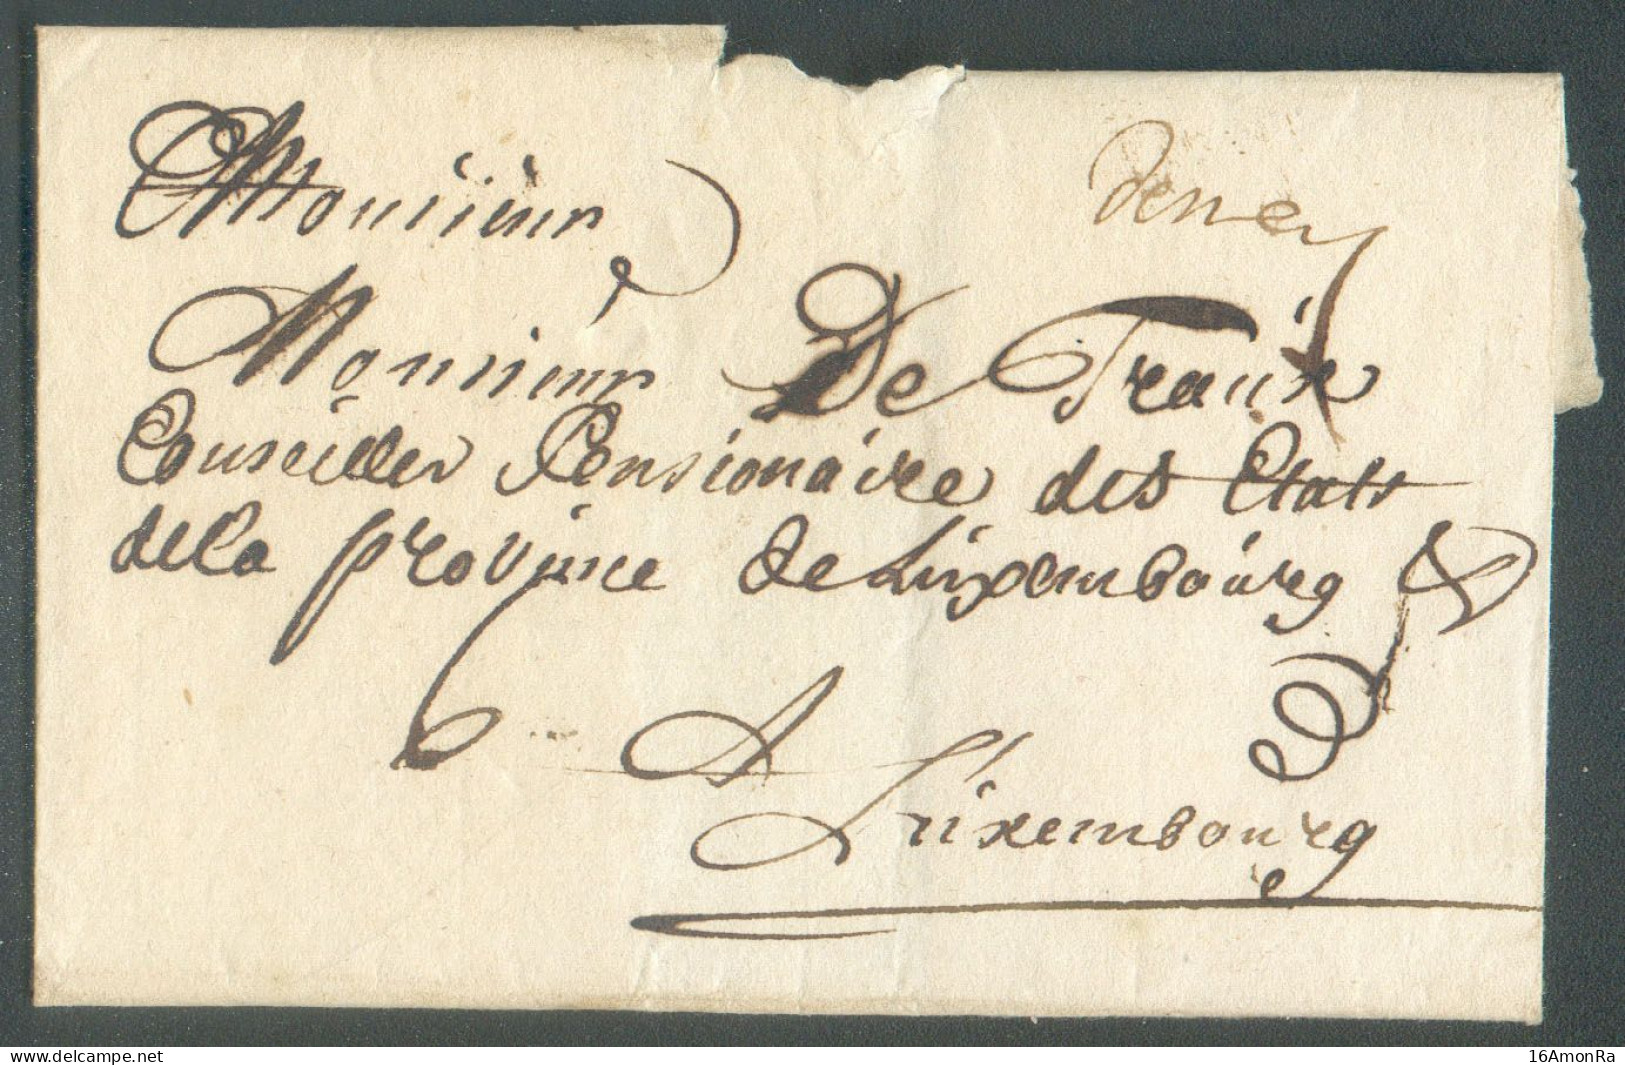 Monsieur
Monsieur De Traux
Conseiller Pensionaire des Etats
de la province de Luxembourg &
A Luxembourg
www.delcampe.net
16AmonRa